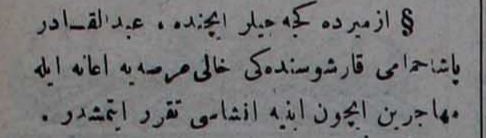 § ازميرده كچه‌جيلر ايچنده ، عبدالقادر
پاشا حمامى قارشوسنده‌كى خالى عرصه‌يه اعانه ايله
مهاجرين ايچون ابنيه انشاسى تقرر ايتمشدر .